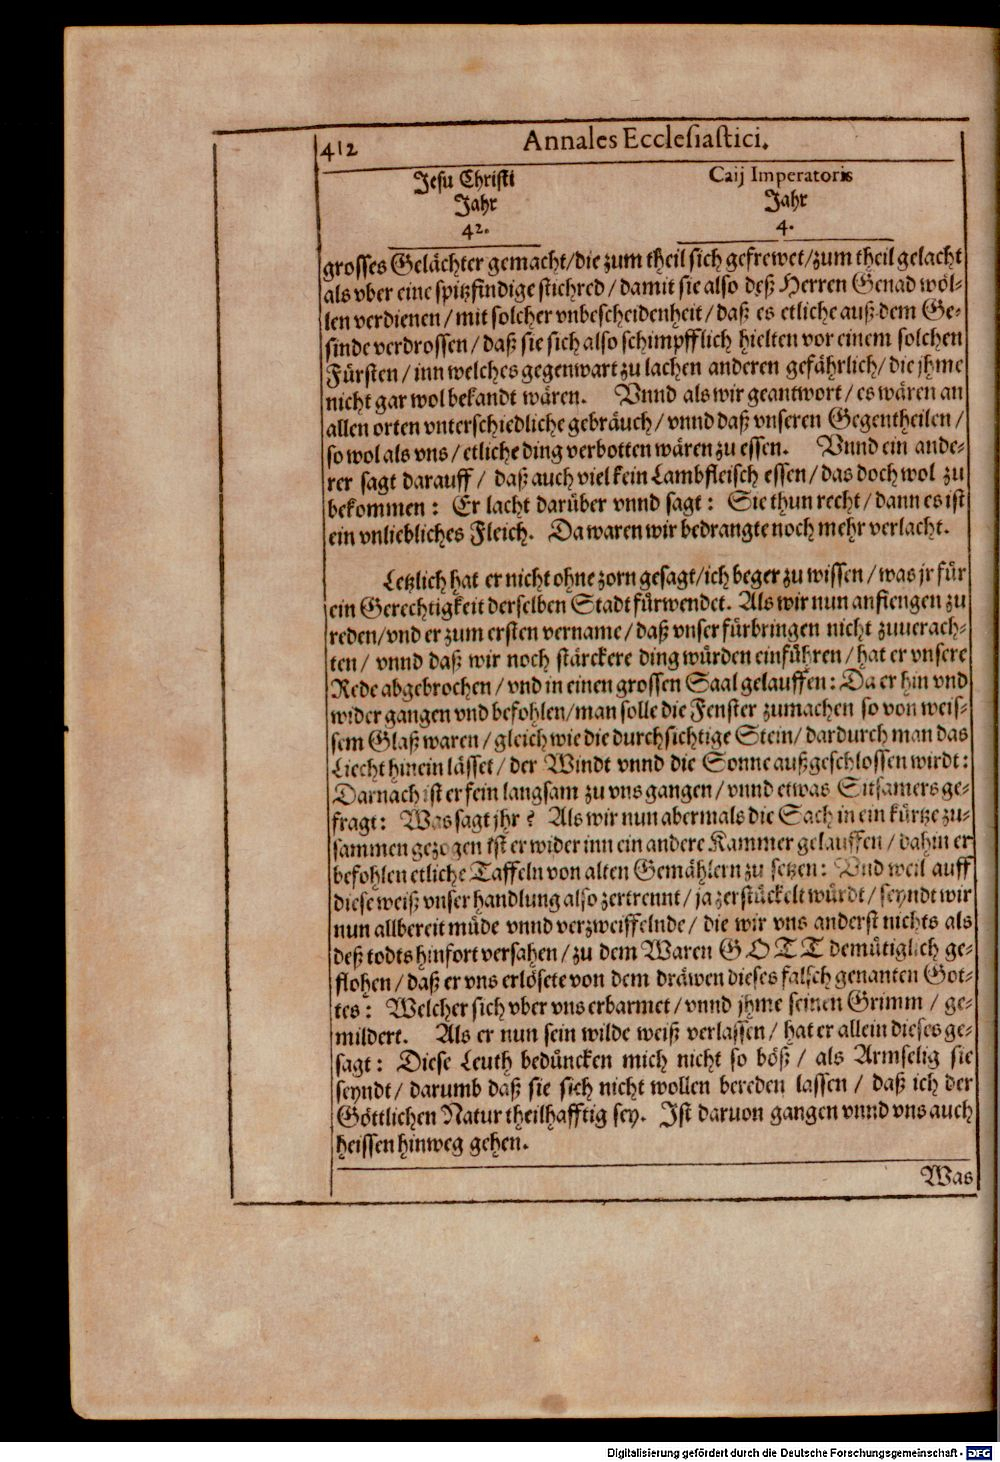 412
Annales Ecclesiastici.
Jesu Christi
Jahr
42.
Caij Imperatoris
Jahr
4.
grosses Gelächter gemacht/die zum theil sich gefrewet/zum theil gelacht
als vber eine spitzfindige stichred/damit sie also deß Herren Genad wöl-
len verdienen/mit solcher vnbescheidenheit/daß es etliche auß dem Ge-
sinde verdrossen/daß sie sich also schimpfflich hielten vor einem solchen
Fürsten/inn welches gegenwart zu lachen anderen gefährlich/die jhme
nicht gar wol bekandt wären. Vnnd als wir geantwort/es wären an
allen orten vnterschiedliche gebräuch/vnnd daß vnseren Gegentheilen/
so wol als vns/etliche ding verbotten wären zu essen. Vnnd ein ande-
rer sagt darauff/ daß auch viel kein Lambfleisch essen/das doch wol zu
bekommen: Er lacht darüber vnnd sagt: Sie thun recht/dann es ist
ein vnliebliches Fleich. Da waren wir bedrangte noch mehr verlacht.
Letzlich hat er nicht ohne zorn gesagt/ich beger zu wissen/was jr für
ein Gerechtigkeit derselben Stadt fürwendet. Als wir nun anfiengen zu
reden/vnd er zum ersten vername/daß vnser fürbringen nicht zuuerach-
ten/ vnnd daß wir noch stärckere ding würden einführen/hat er vnsere
Rede abgebrochen/vnd in einen grossen Saal gelauffen: Da er hin vnd
wider gangen vnd befohlen/man solle die Fenster zumachen so von weis-
sem Glaß waren/gleich wie die durchsichtige Stein/dardurch man das
Liecht hinein lässet/der Windt vnnd die Sonne außgeschlossen wirdt:
Darnach ist er fein langsam zu vns gangen/vnnd etwas Sitsamers ge-
fragt: Was sagt jhr? Als wir nun abermals die Sach in ein kürtze zu-
sammen gezogen ist er wider inn ein andere Kammer gelauffen/dahin er
befohlen etliche Taffeln von alten Gemählern zu setzen: Vnd weil auff
diese weiß vnser handlung also zertrennt/ja zerstückelt würdt/seyndt wir
nun allbereit müde vnnd verzweiffelnde/die wir vns anderst nichts als
deß todts hinfort versahen/zu dem Waren GOTT demütiglich ge-
flohen/daß er vns erlösete von dem dräwen dieses falsch genanten Got-
tes: Welcher sich vber vns erbarmet/vnnd jhme seinen Grimm/ge-
mildert. Als er nun sein wilde weiß verlassen/hat er allein dieses ge-
sagt: Diese Leuth bedüncken mich nicht so böß/ als Armselig sie
seyndt/darumb daß sie sich nicht wollen bereden lassen/ daß ich der
Göttlichen Natur theilhafftig sey. Ist daruon gangen vnnd vns auch
heissen hinweg gehen.
Was
Digitalisierung gefördert durch die Deutsche Forschungsgemeinschaft - DFG